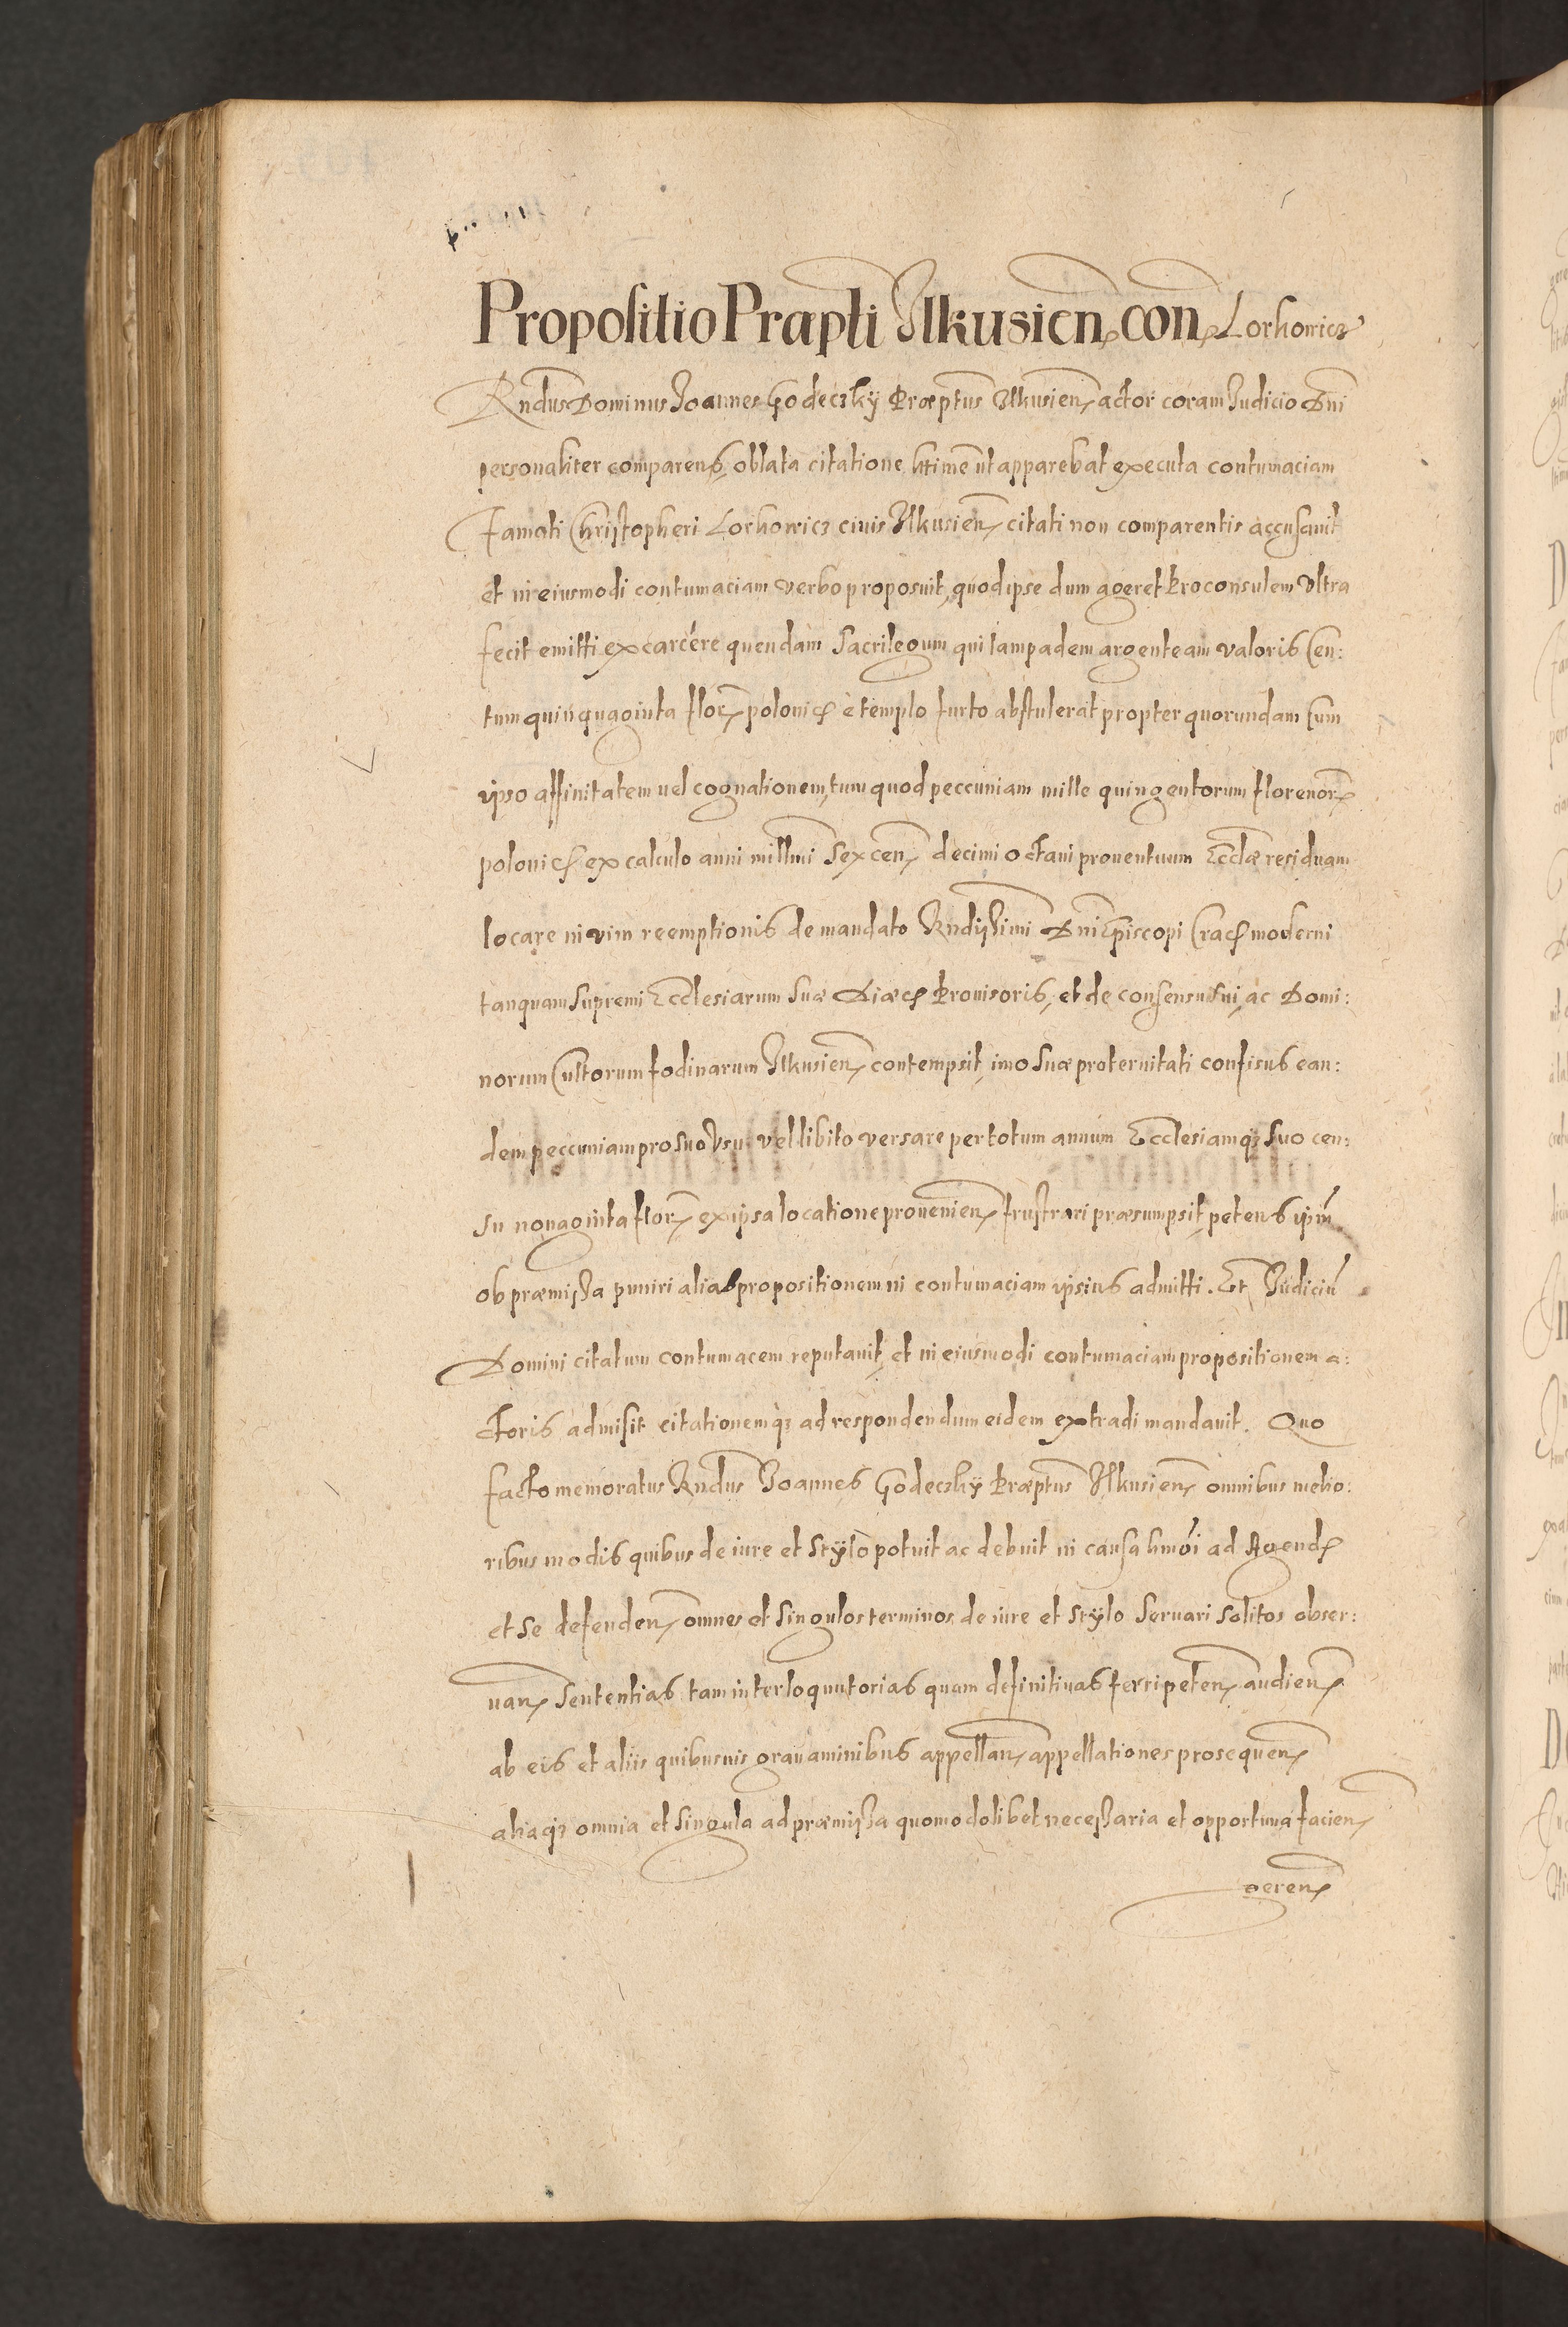 Propositio Præpti Ilkusien con Lorkowicz
Rndus Dominus Joannes Godeczky Præptus Ilkusien actor coram Judicio Dni
personaliter comparens, oblata citatione ltime ut apparebat executa contumaciam
Famati Christopheri Lorkowicz civis Ilkusien citati non comparentis accusavit
et in eiusmodi contumaciam verbo proposuit, quod ipse dum ageret Proconsulem Vltra
fecit emitti ex carcere quendam Sacrilegum qui lampadem argenteam valoris Cen:
tum quinquaginta flor polonic è templo furto abstulerat propter quorundam cum
ipso affinitatem vel cognationem, tum quod peccuniam mille quingentorum florenor
polonic ex calculo anni millmi Sexcen decimi octavi proventuum Ecclæ residuam
locare in vim reemptionis de mandato Rndissimi Dni Episcopi Crac moderni
tanquam Supremi Ecclesiarum Suæ Diæc Provisoris, et de consensu sui, ac Domi:
norum Cultorum fodinarum Ilkusien contempsit, imo Suæ protervitati confisus ean:
dem peccuniam pro suo Vsu vel libito versare per totum annum Ecclesiamq3 Suo cen:
su nonaginta flor ex ipsa locatione provenien frustrari præsumpsit, petens ipm
ob præmissa puniri alias propositionem in contumaciam ipsius admitti. Et Judiciu
Domini citatum contumacem reputavit, et in eiusmodi contumaciam propositionem a:
ctoris admisit citationemq3 ad respondendum eidem extradi mandavit. Quo
facto memoratus Rndus Joannes Godeczky Præptus Ilkusien omnibus melio:
ribus modis quibus de iure et stylo potuit ac debuit in causa hmoi ad Agend
et se defenden omnes et singulos terminos de iure et stylo Servari Solitos obser:
van Sententias tam interloquutorias quam definitivas ferri peten audien
ab eis et aliis quibusvis gravaminibus appellan appellationes prosequen
aliaq3 omnia et Singula ad præmissa quomodolibet necessaria et opportuna facien
geren